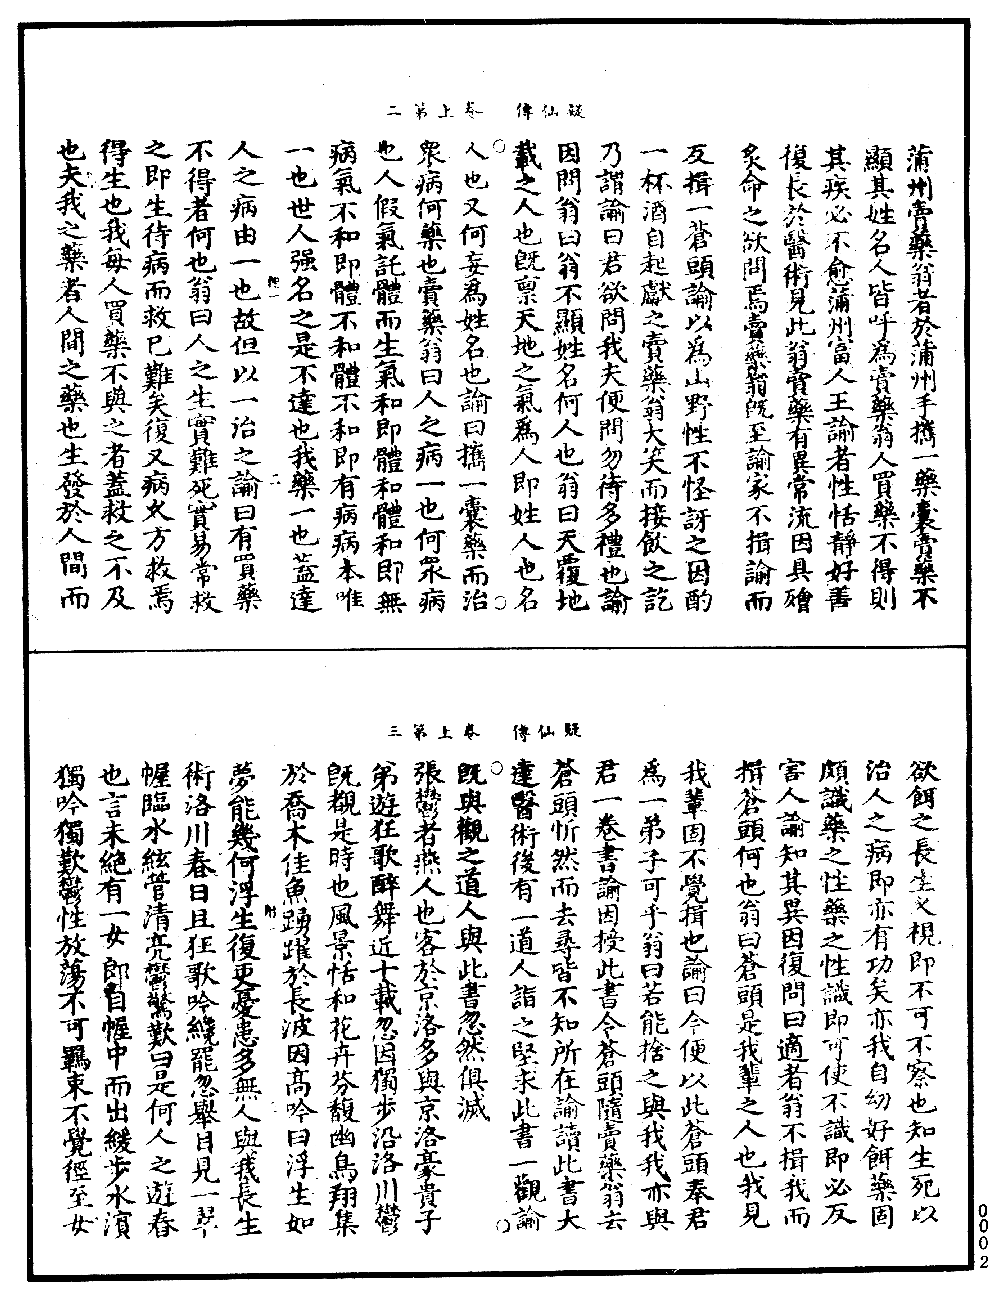 疑仙傳　卷上第二
蒲州賣藥翁者於蒲州手攜一藥囊賣藥不
顯其姓名人皆呼為賣藥翁人買藥不得則
其疾必不愈蒲州富人王諭者性恬靜好善
復長於醫術見此翁賣藥有異常流因具殽
炙命之欲問焉賣藥翁旣至諭家不揖諭而
反揖一蒼頭諭以為山野性不怪訝之因酌
一杯酒自起獻之賣藥翁大笑而接飲之訖
乃謂諭曰君欲問我夫便問勿待多禮也諭
因問翁曰翁不顯姓名何人也翁曰天覆地
載之人也旣禀天地之氣為人即姓人也名
人也又何妄為姓名也諭曰攜一囊藥而治
衆病何藥也賣藥翁曰人之病一也何衆病
也人假氣託體而生氣和即體和體和即無
病氣不和即體不和體不和即有病病本唯
一也世人强名之是不達也我藥一也蓋達
人之病由一也故但以一治之諭曰有買藥
不得者何也翁曰人之生實難死實易常救
之即生待病而救已難矣復又病久方救焉
得生也我每人買藥不與之者蓋救之不及
也夫我之藥者人間之藥也生發於人間而
疑仙傳　卷上第三
欲餌之長生又視即不可不察也知生死以
治人之病即亦有功矣亦我自幼好餌藥固
頗識藥之性藥之性識即可使不識即必反
害人諭知其異因復問曰適者翁不揖我而
揖蒼頭何也翁曰蒼頭是我輩之人也我見
我輩固不覺揖也諭曰今便以此蒼頭奉君
為一弟子可乎翁曰若能捨之與我我亦與
君一卷書諭因授此書令蒼頭隨賣藥翁去
蒼頭忻然而去尋皆不知所在諭讀此書大
達醫術後有一道人詣之堅求此書一觀諭
旣與觀之道人與此書忽然俱滅
張鬱者燕人也客於京洛多與京洛豪貴子
弟遊狂歌醉舞近十載忽因獨步沿洛川鬱
旣觀是時也風景恬和花卉芬馥幽鳥翔集
於喬木佳魚踴躍於長波因高吟曰浮生如
夢能幾何浮生復更憂患多無人與我長生
術洛川春日且狂歌吟纔罷忽舉目見一翠
幄臨水絃管清亮鬱驚歎曰是何人之遊春
也言未絕有一女郎自幄中而出緩步水濱
獨吟獨歎鬱性放蕩不可羈束不覺徑至女
0002